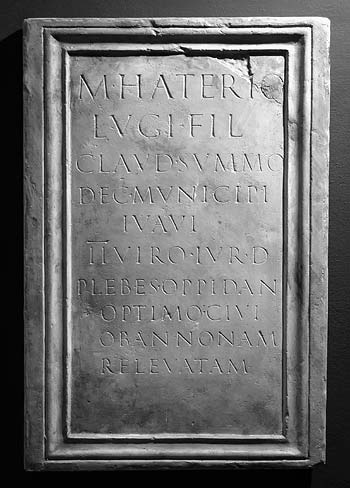 M·HATERIO
LVCI·FIL
CLAVD·SVMMO
DEC·MVNICIPI
IVAVI
II VIRO·IVR·D
PLEBES·OPPIDAN
OPTIMO·CIVI
OB ANNONAM
RELEVATAM